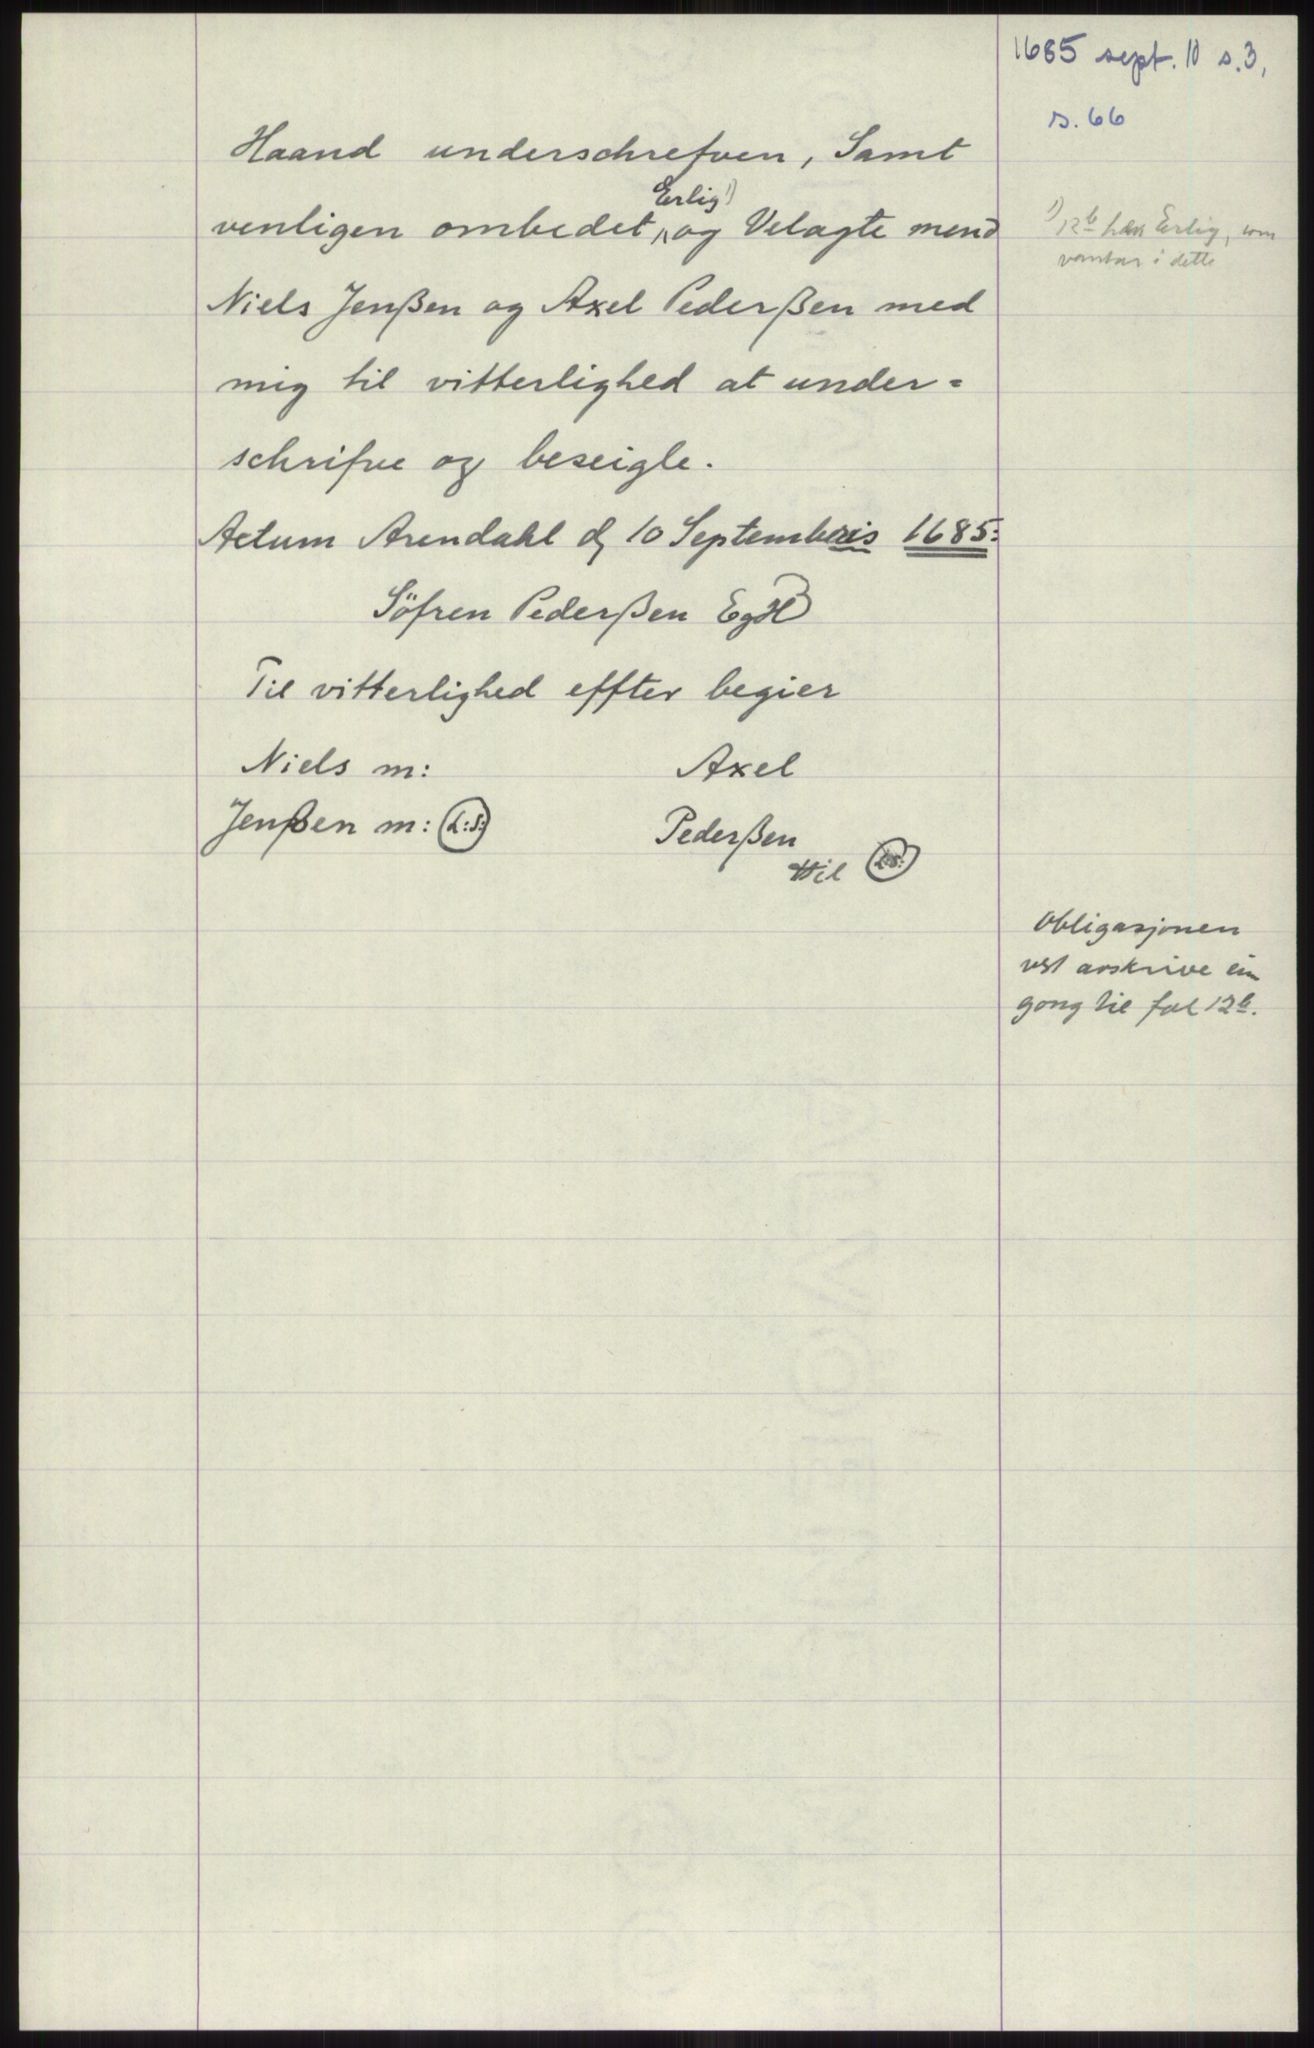 1685 sept. 10 s.3,
s. 66
Haand underschrefven, Samt
Erlig 1)
venligen ombedet og Velagte mend
Niels Jenßen og Axel Pederßen med
mig til vitterlighed at under=
schrifve og beseigle.
Actum Arendahl d 10 Septembris 1685:
Söfren Pederßen EgH
Til vitterlighed effter begier
Niels m: Axel
Jenßen m: L:S: Pederßen
L:S:
1) 12b har Erlig, som
vantar i dette
Obligasjonen
vert avskrive ein
gong til fol 12b.